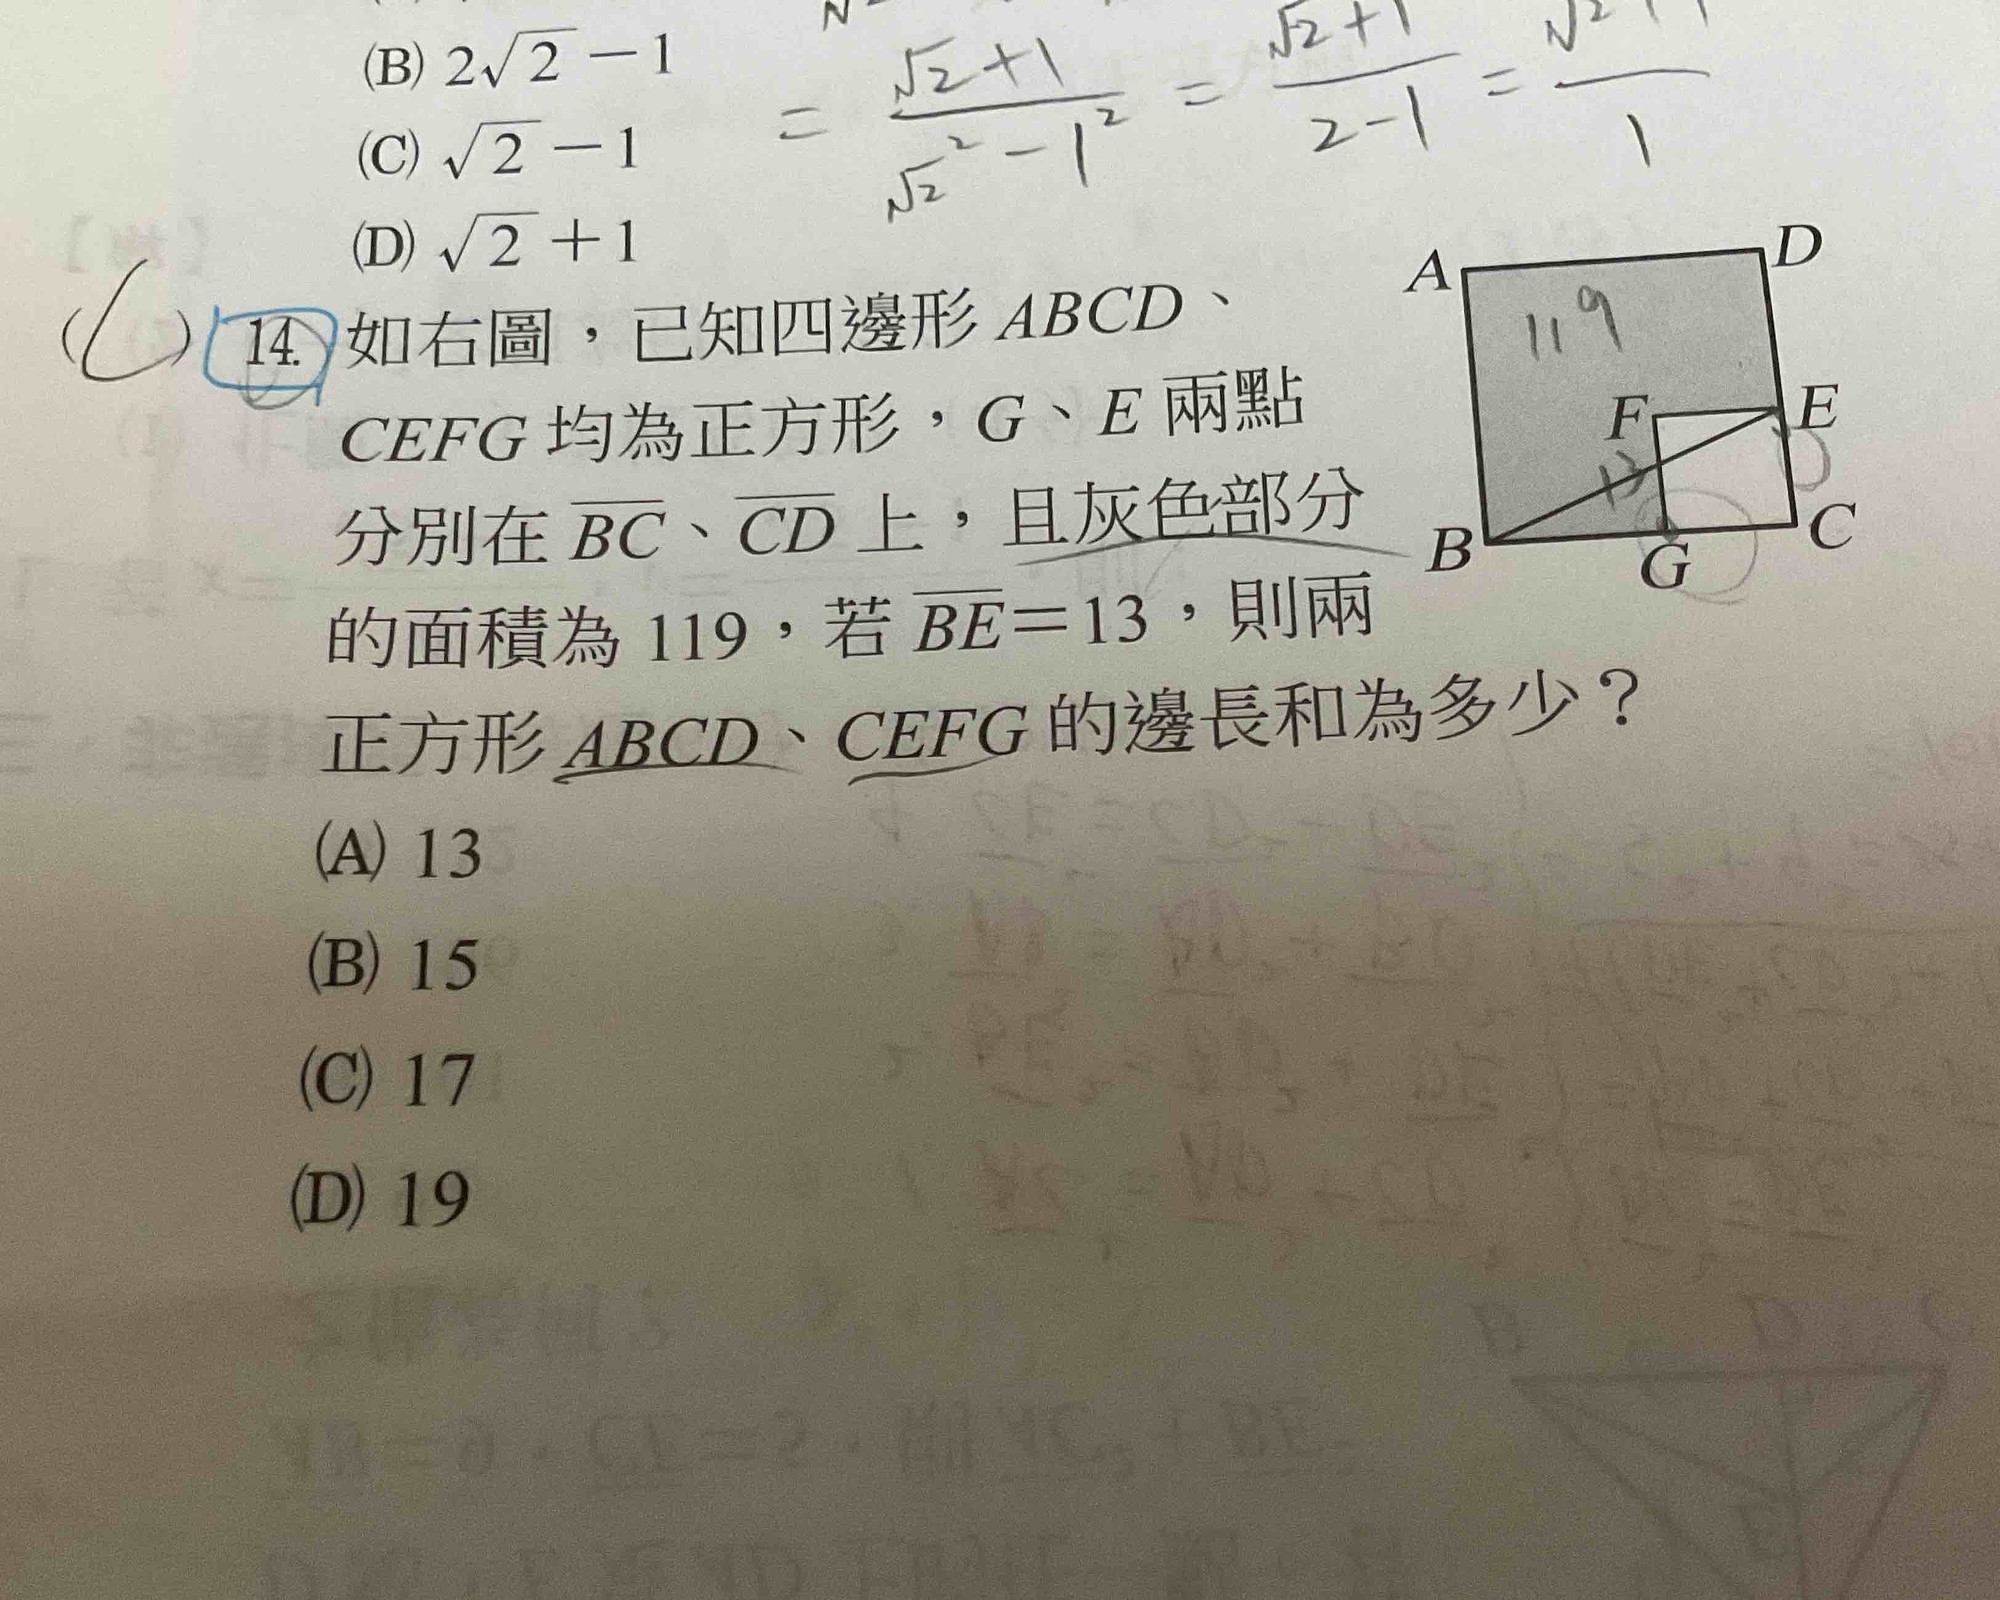 (B) 2√2 − 1
= √2+1 / √2² − 1² = √2+1 / 2−1 = √2+1 / 1
(C) √2 − 1
(D) √2 + 1
(C) 14. 如右圖，已知四邊形 ABCD、
CEFG 均為正方形，G、E 兩點
分別在 BC、CD 上，且灰色部分
的面積為 119，若 BE＝13，則兩
正方形 ABCD、CEFG 的邊長和為多少？
(A) 13
(B) 15
(C) 17
(D) 19
A
D
119
F
E
13
B
G
C